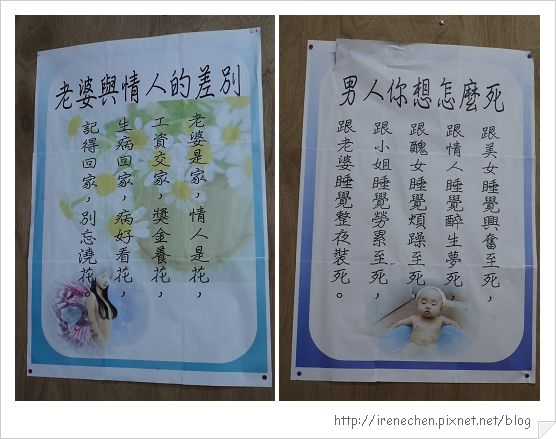 老婆與情人的差別
老婆是家，情人是花，
工資交家，獎金養花，
生病回家，病好看花，
記得回家，別忘澆花。
男人你想怎麼死
跟美女睡覺興奮至死，
跟情人睡覺醉生夢死
跟醜女睡覺煩躁至死
跟小姐睡覺勞累至死，
跟老婆睡覺整夜裝死。
http://irenechen.pixnet.net/blog